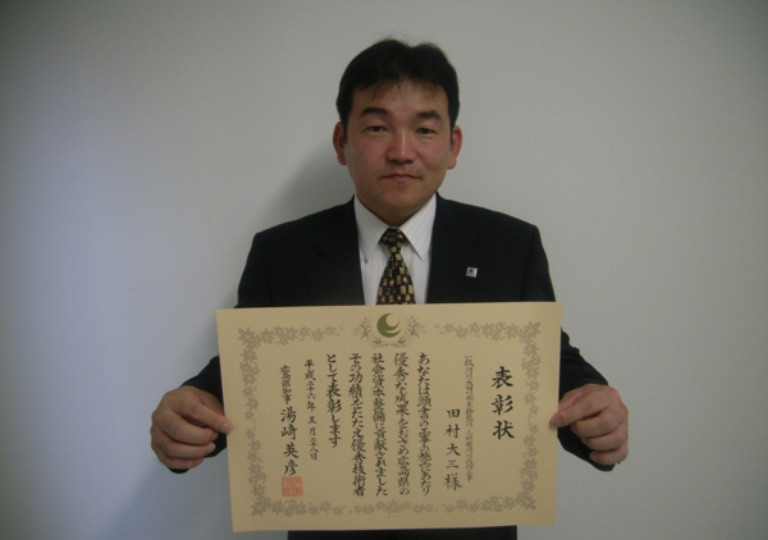 表彰状
田村大三様
あなたは頭書の工事の施工にあたり
優秀な成果をおさめ広島県の
社会資本整備に貢献されました
その功績をたたえ優秀技術者
として表彰します
平成二十六年五月二十八日
広島県知事 湯﨑英彦